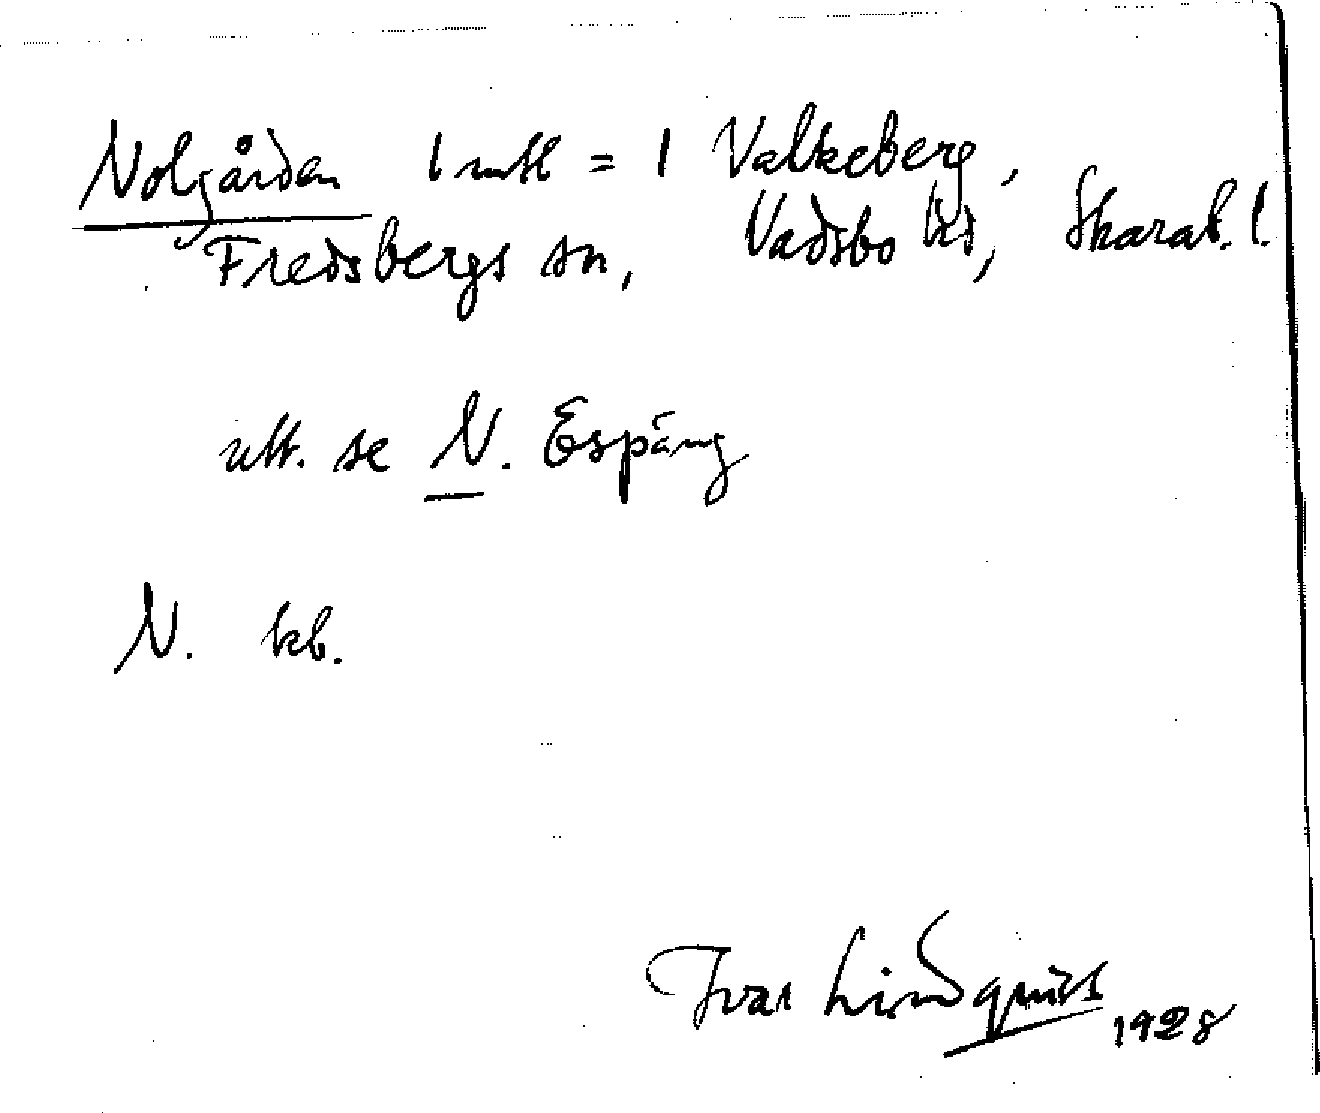 Nolgården 1 mtl = 1 Valkeberg,
Fredsbergs sn, Vadsbo hd, Skarab. l.
utt. se N. Espäng
N. kb.
Ivar Lindquist
1928